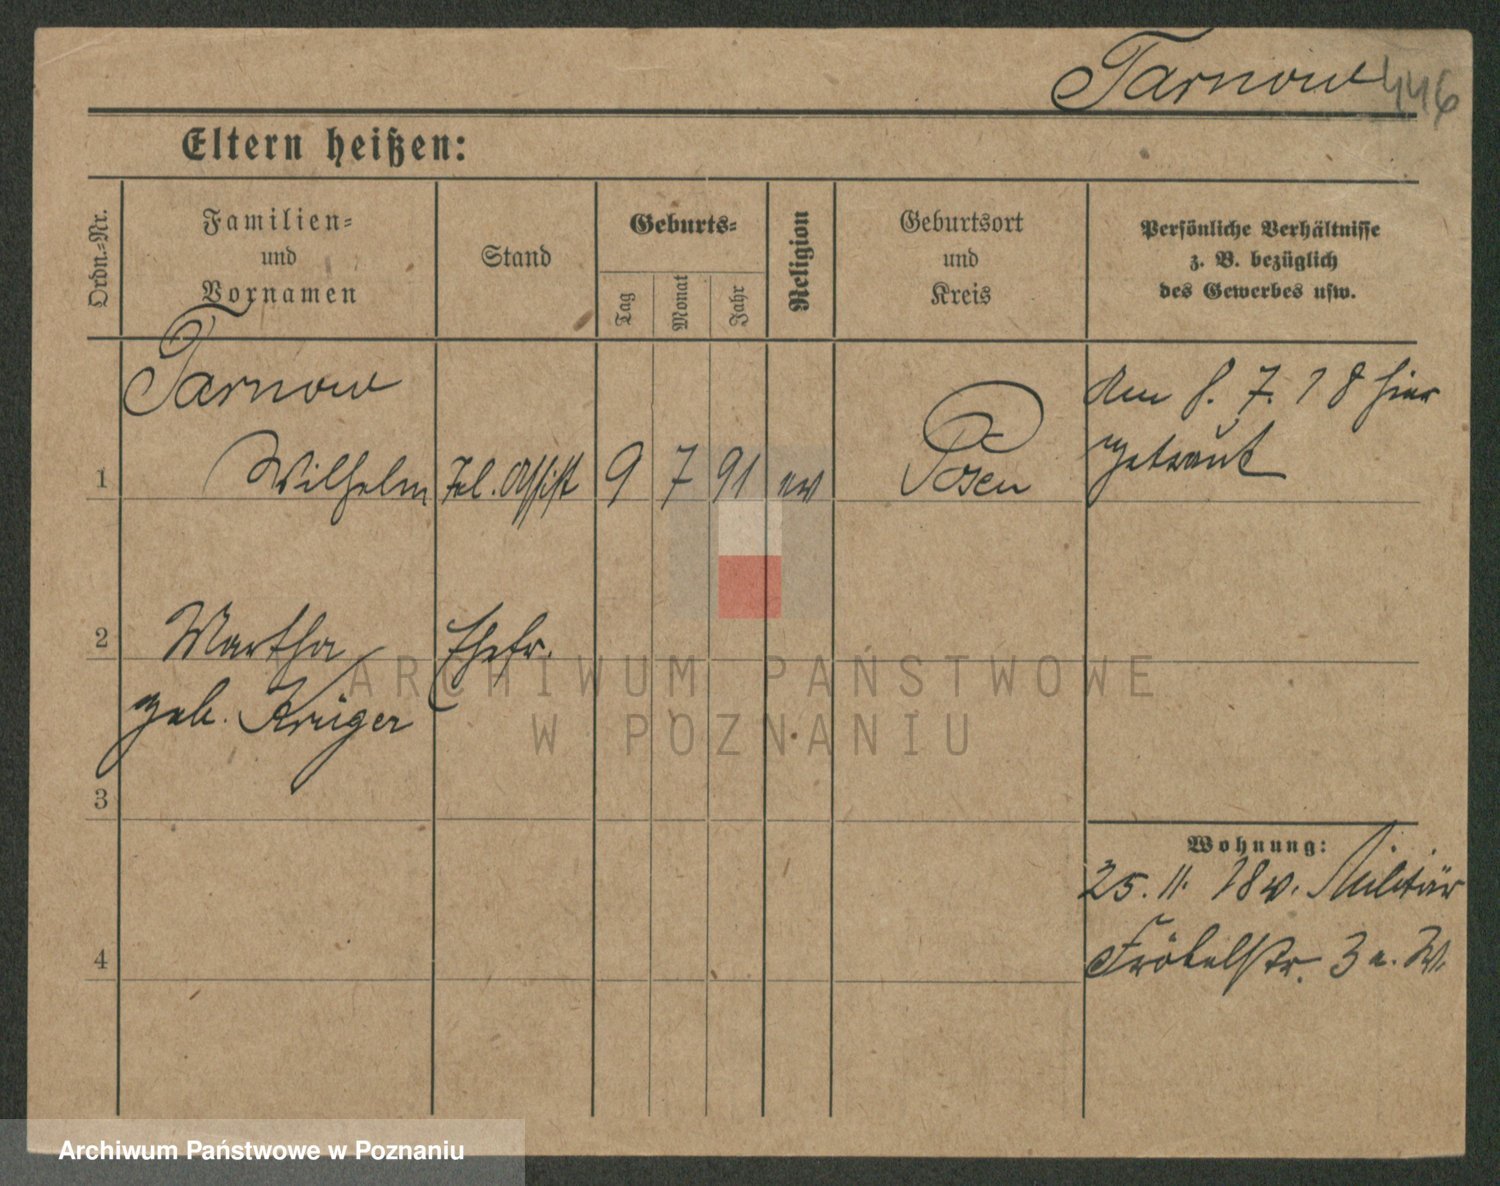 Tarnow 446
Eltern heißen:
Ordn.-Nr.
Familien-
und
Vornamen
Stand
Geburts-
Tag
Monat
Jahr
Religion
Geburtsort
und
Kreis
Persönliche Verhältnisse
z. B. bezüglich
des Gewerbes usw.
Tarnow
1 Wilhelm Tel. Assist 9 7 91 ev Posen
am 8. 7. 18 hier
getraut
2 Martha Ehefr.
geb. Krüger
3
4
Wohnung:
25. 11. 18 v. Militär
Fröbelstr. 3 a. W.
ARCHIWUM PAŃSTWOWE
W POZNANIU
Archiwum Państwowe w Poznaniu